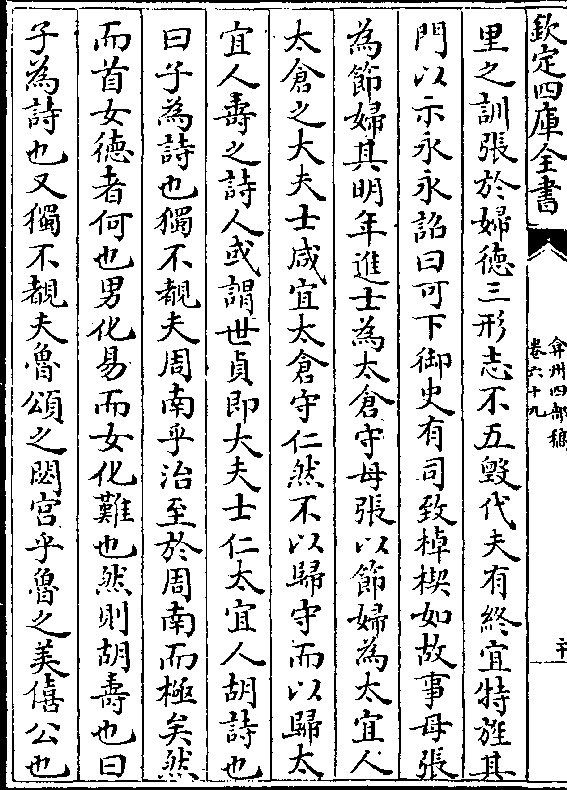 欽定四庫全書
弇州四部稿
卷六十九
里之訓張於婦德三形志不五毀代夫有終宜特旌其
門以示永永詔曰可下御史有司致棹楔如故事母張
為節婦其明年進士為太倉守母張以節婦為太宜人
太倉之大夫士咸宜太倉守仁然不以歸守而以歸太
宜人壽之詩人或謂世貞即大夫士仁太宜人胡詩也
曰子為詩也獨不覩夫周南乎治至於周南而極矣然
而首女德者何也男化易而女化難也然則胡壽也曰
子為詩也又獨不覩夫魯頌之閟宮乎魯之美僖公也